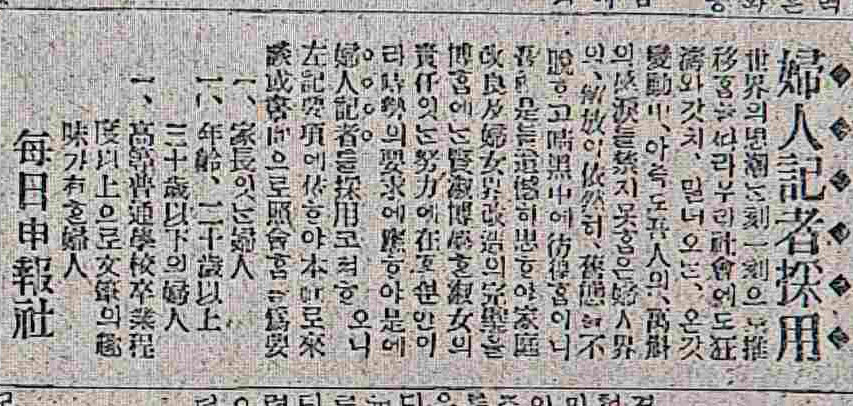 婦人記者採用
世界의思潮는刻一刻으로推
移홈을ᄯᅡ라우리社會에도狂
濤와갓치、밀녀오는、온갓
變動中、아즉도吾人의、萬斛
의 淚를禁치못홈은婦人界
의、解放이依然히、舊態를不
脫ᄒᆞ고暗黑中에彷徨홈이니
是를遺憾히思ᄒᆞ야家庭
改良及婦女界改造의完璧을
博홈에는賢淑博學ᄒᆞᆫ淑女의
責任잇는努力에在ᄒᆞᆯᄲᅮᆫ안이
라時勢의要求에應ᄒᆞ야是에
婦人記者를採用코져ᄒᆞ오니
左記要項에依ᄒᆞ야本社로來
談或書面으로照會홈을爲要
一、家長잇는婦人
一、年齡、二十歲以上
三十歲以下의婦人
一、高等普通學校卒業程
度以上으로文筆의趣
味가有ᄒᆞᆫ婦人
每日申報社